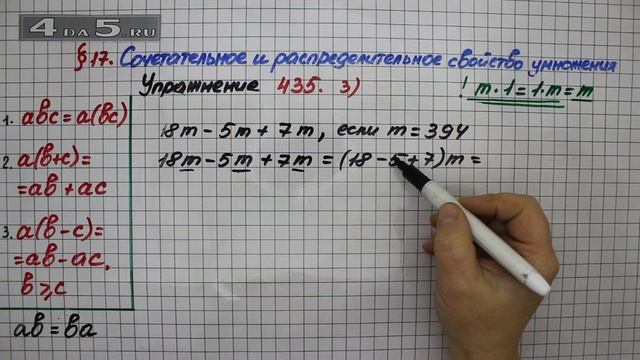 4 ДА 5.RU
§17. Сочетательное и распределительное свойство умножения
Упражнение 435. 3)
! m·1=1·m=m
1. abc=a(bc)
2. a(b+c)=
=ab+ac
3. a(b-c)=
=ab-ac,
b⩾c
ab=ba
18m-5m+7m, если m=394
18m-5m+7m=(18-5+7)m=